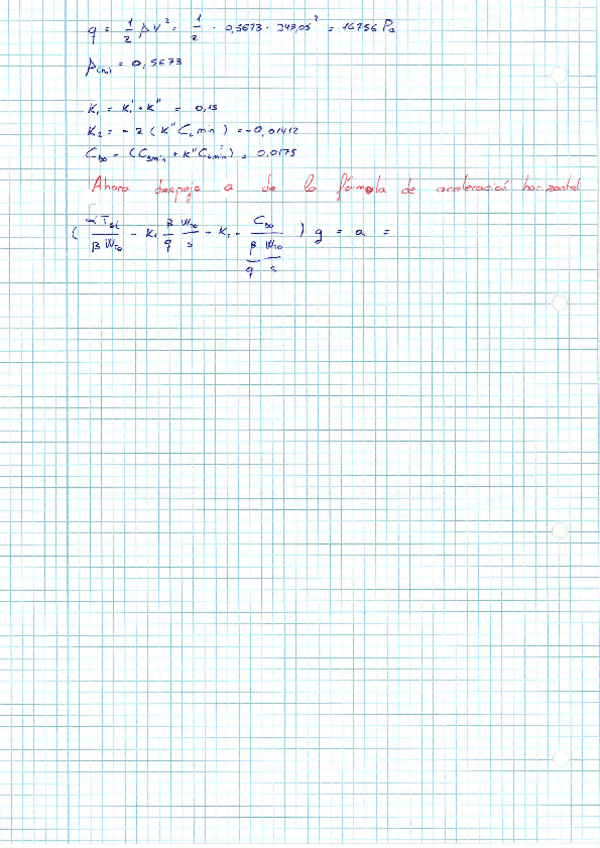 q = 1/2 ρ V² = 1/2 · 0,5673 · 243,05² = 16756 Pa
ρ(h,) = 0,5673
K₁ = K' + K'' = 0,15
K₂ = -2 (K'' C_L min) = -0,01412
C_D0 = (C_Dmin + K'' C_Lmin²) = 0,0175
Ahora despejo a de la fórmula de aceleración horizontal
( αT_SL / βW_TO - K₁ β/q W_TO/S - K₂ - C_D0 / (β/q W_TO/S) ) g = a =